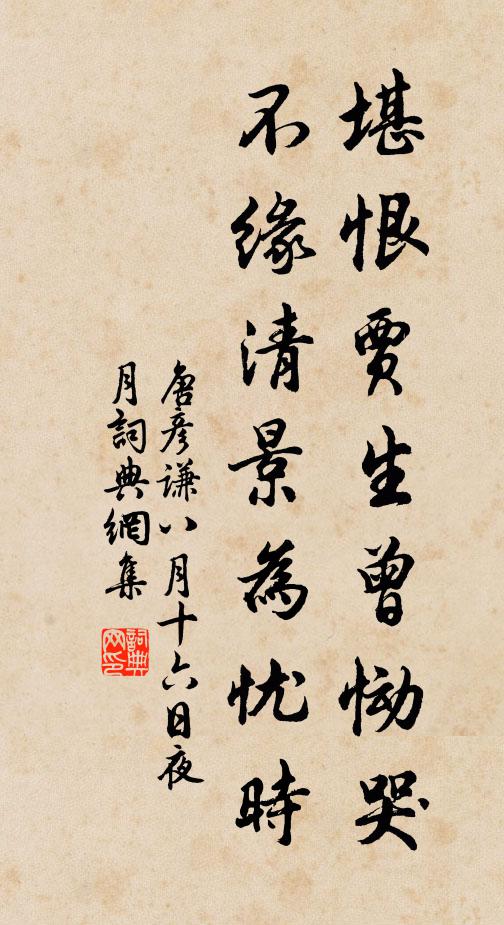 堪恨賈生曾慟哭
不緣清景為忧時
唐彥謙八月十六日夜
月詞典網集
詞典网印